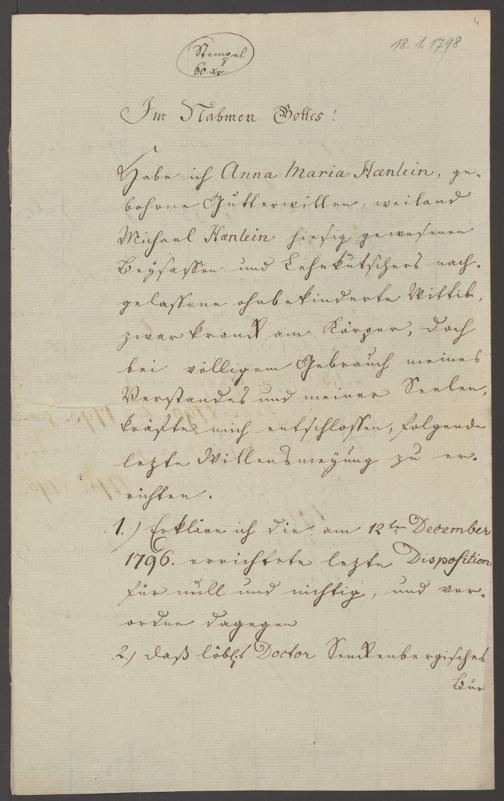 4
18.1.1798
Stempel
60 xr
Im Nahmen Gottes!
Habe ich Anna Maria Hænlein, ge-
bohrne Gutterwillen, weiland
Michael Hænlein hiesig gewesenen
Beysassen und Lehnkutschers nach-
gelassene ohnbekinderte Wittib,
zwar kranck am Körper, doch
bei völligem Gebrauch meines
Verstandes und meiner Seelen,
kräfte mich entschlossen, folgende
lezte Willensmeynung zu er-
richten.
1.) Erkläre ich die am 12ten December
1796. errichtete lezte Disposition
für null und nichtig, und ver-
ordne dagegen
2.) daß löbl. Doctor Senckenbergisches
Bür